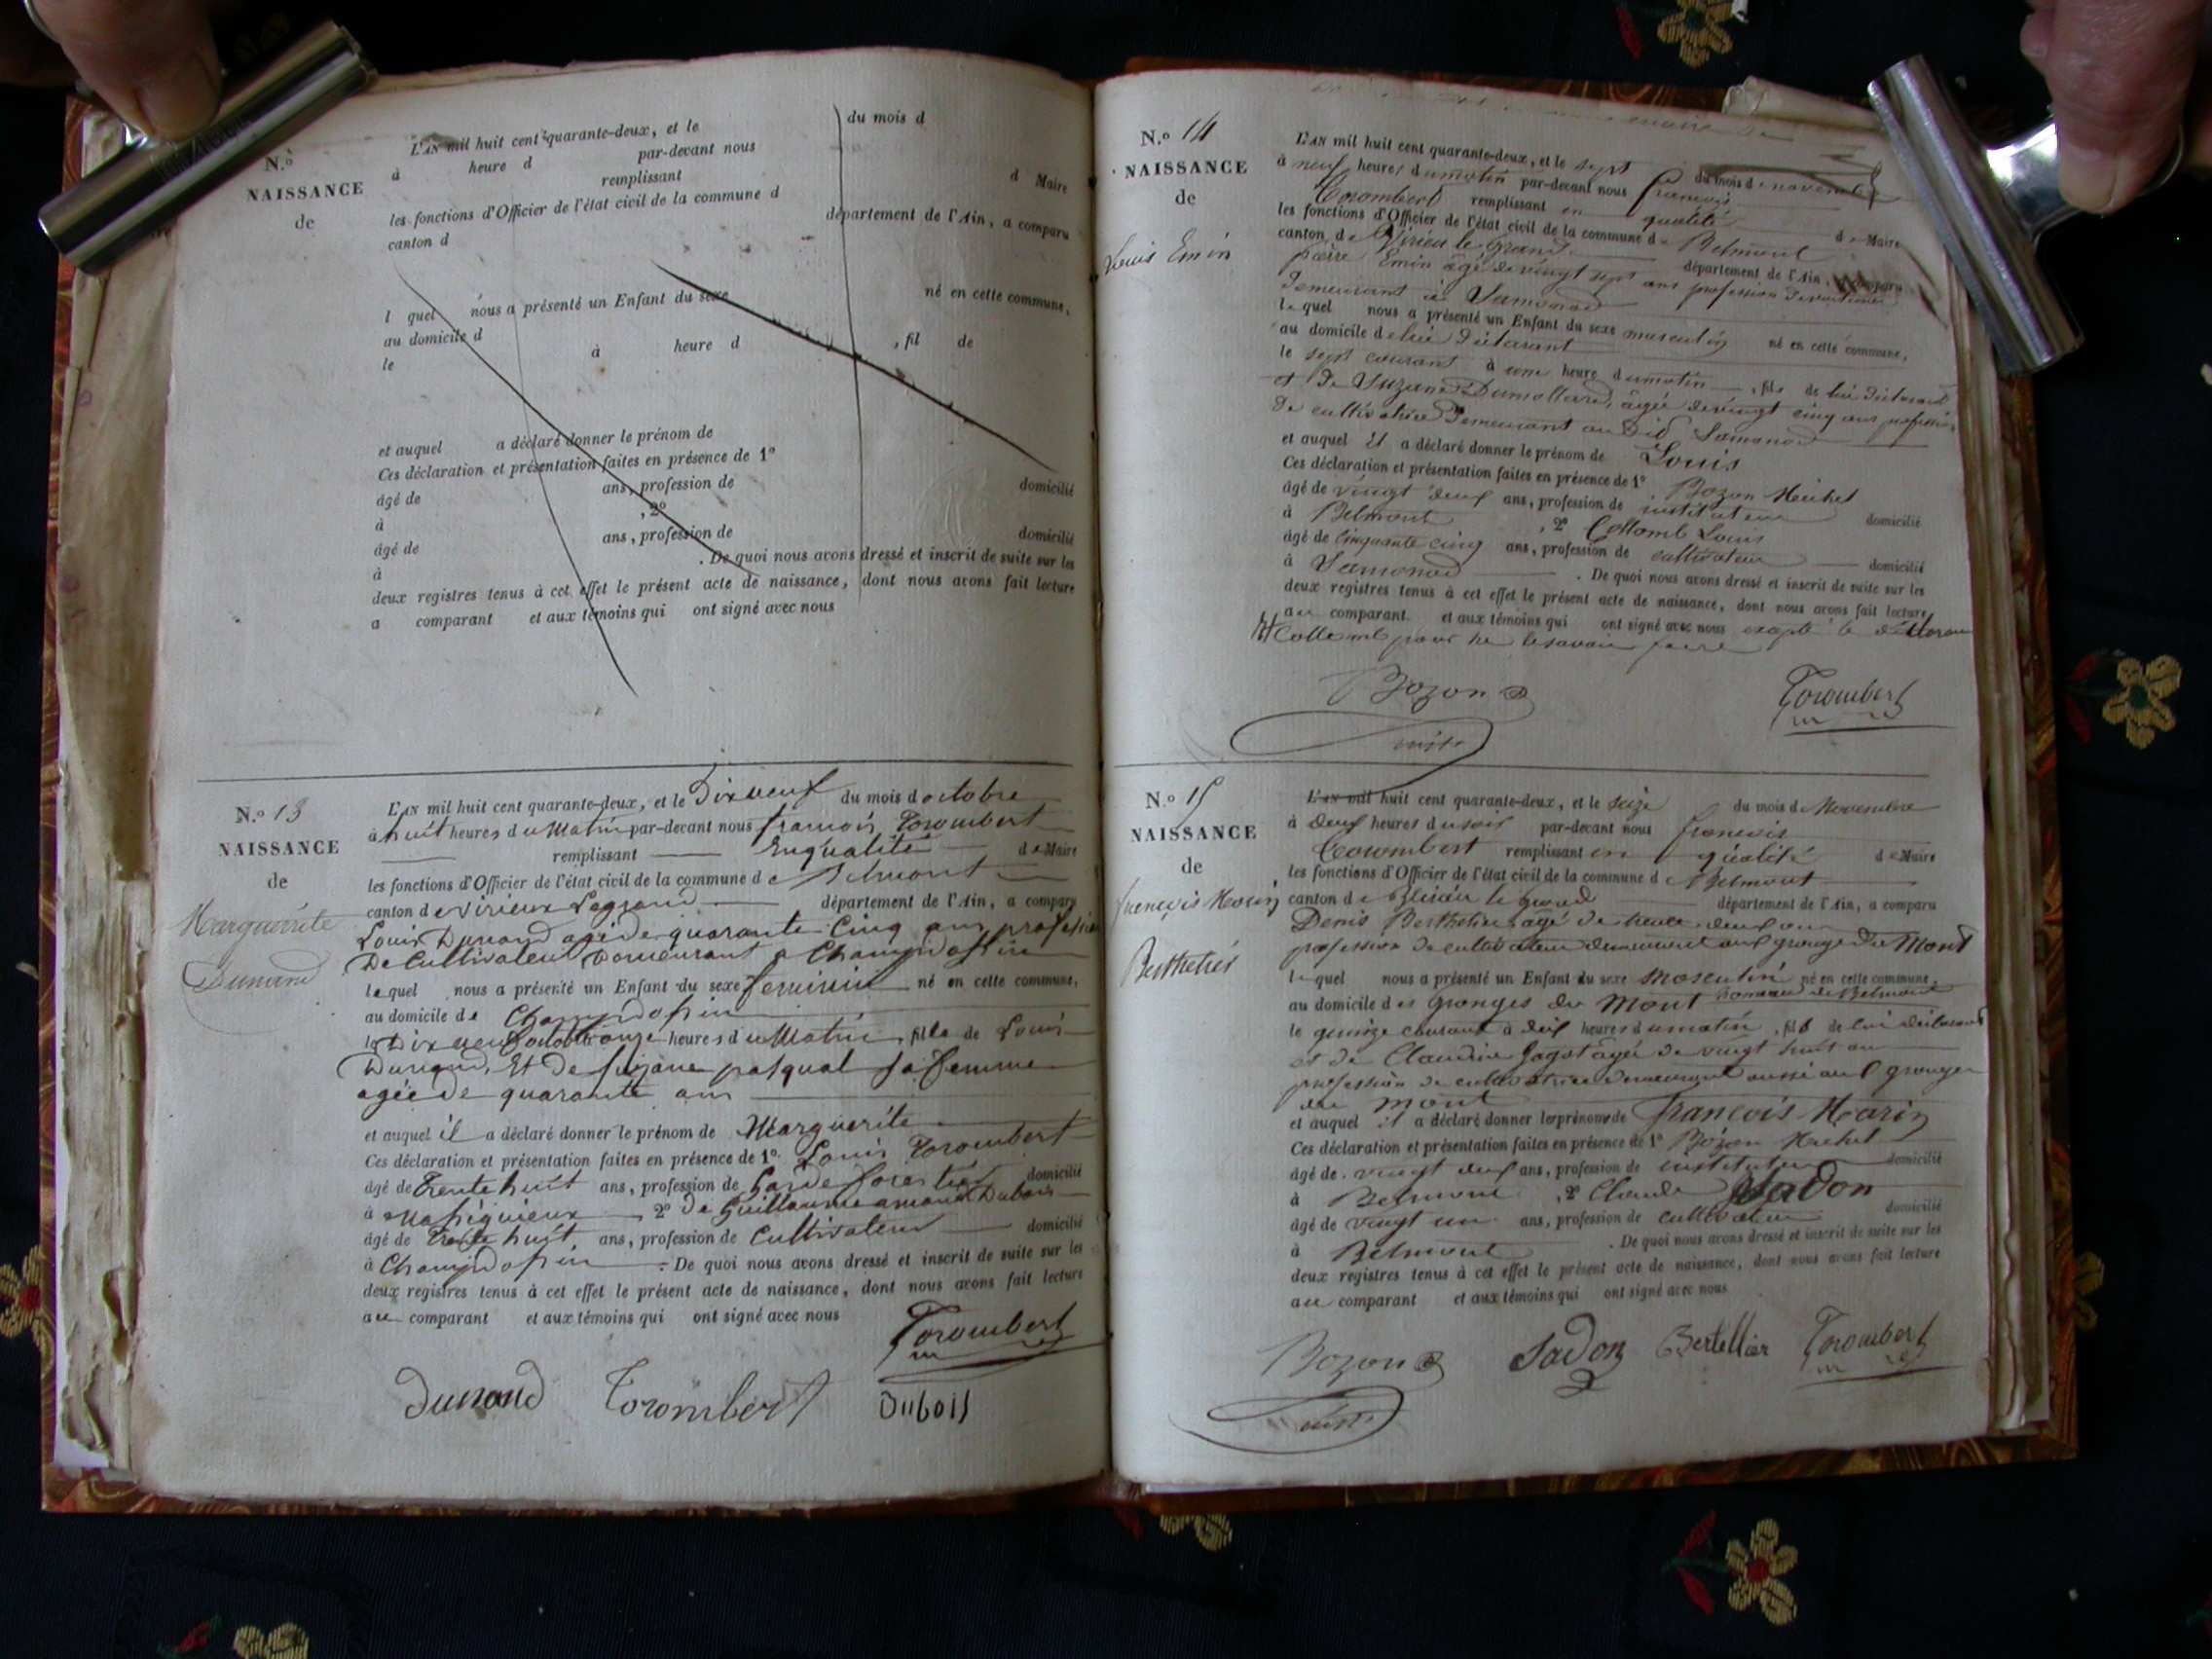 N.o
NAISSANCE
de
L'AN mil huit cent quarante-deux, et le du mois d
à heure d par-devant nous
remplissant d Maire
les fonctions d'Officier de l'état civil de la commune d
canton d département de l'Ain, a comparu
l quel nous a présenté un Enfant du sexe né en cette commune,
au domicile d
le à heure d , fil de
et auquel a déclaré donner le prénom de
Ces déclaration et présentation faites en présence de 1o
âgé de ans, profession de domicilié
à , 2o
âgé de ans, profession de domicilié
à . De quoi nous avons dressé et inscrit de suite sur les
deux registres tenus à cet effet le présent acte de naissance, dont nous avons fait lecture
a comparant et aux témoins qui ont signé avec nous
N.o 13
NAISSANCE
de
Marguerite
Dunand
L'AN mil huit cent quarante-deux, et le Dix neuf du mois d octobre
à huit heures du Matin par-devant nous francois Torombert
remplissant En qualité de Maire
les fonctions d'Officier de l'état civil de la commune de Belmont
canton de Virieux Legrand département de l'Ain, a comparu
Louis Dunand agé de quarante Cinq ans profession
De Cultivateur Demeurant a
lequel nous a présenté un Enfant du sexe feminin né en cette commune,
au domicile de
le Dix neuf octobre onze heures du Matin, fille de Louis
Dunand, Et de Suzane pasqual sa femme
agée de quarante ans
et auquel il a déclaré donner le prénom de Marguerite
Ces déclaration et présentation faites en présence de 1o Louis Torombert
âgé de Trente huit ans, profession de Garde forestier domicilié
à 2o De Guillaume Dubois
âgé de Trente huit ans, profession de Cultivateur domicilié
à . De quoi nous avons dressé et inscrit de suite sur les
deux registres tenus à cet effet le présent acte de naissance, dont nous avons fait lecture
au comparant et aux témoins qui ont signé avec nous
Torombert
Dunand Torombert Dubois
N.o 14
NAISSANCE
de
Louis Emin
L'AN mil huit cent quarante-deux, et le sept du mois de novembre
à neuf heures du matin par-devant nous francois
Torombert remplissant en qualité de Maire
les fonctions d'Officier de l'état civil de la commune de Belmont
canton de Virieu le Grand département de l'Ain, a comparu
pierre Emin âgé de vingt sept ans profession
demeurant à Samonod
lequel nous a présenté un Enfant du sexe masculin né en cette commune,
au domicile de lui déclarant
le sept courant à une heure du matin, fils de lui déclarant
et de Suzane Dumollard, âgée de vingt cinq ans profession
de cultivatrice demeurant au dit Samonod
et auquel il a déclaré donner le prénom de Louis
Ces déclaration et présentation faites en présence de 1o Bozon Michel
âgé de vingt deux ans, profession de instituteur domicilié
à Belmont , 2o Collomb Louis
âgé de cinquante cinq ans, profession de cultivateur domicilié
à Samonod . De quoi nous avons dressé et inscrit de suite sur les
deux registres tenus à cet effet le présent acte de naissance, dont nous avons fait lecture
au comparant et aux témoins qui ont signé avec nous exepté le
Collomb pour ne le savoir faire
Bozon Torombert
N.o 15
NAISSANCE
de
francois Marin
L'AN mil huit cent quarante-deux, et le seize du mois de Novembre
à deux heures du soir par-devant nous francois
Torombert remplissant en qualité de Maire
les fonctions d'Officier de l'état civil de la commune de Belmont
canton de Virieu le grand département de l'Ain, a comparu
Denis agé de trente deux ans
profession de cultivateur demeurant aux granges du Mont
lequel nous a présenté un Enfant du sexe Masculin né en cette commune,
au domicile des granges du Mont hameau de Belmont
le quinze courant à dix heures du matin, fils de lui déclarant
et de Claudine âgée de vingt huit ans
profession de cultivatrice demeurant aussi aux granges
du mont
et auquel il a déclaré donner les prénoms de francois Marin
Ces déclaration et présentation faites en présence de 1o Bozon Michel
âgé de vingt deux ans, profession de instituteur domicilié
à Belmont , 2o Claude Jadon
âgé de vingt un ans, profession de cultivateur domicilié
à Belmont . De quoi nous avons dressé et inscrit de suite sur les
deux registres tenus à cet effet le présent acte de naissance, dont nous avons fait lecture
au comparant et aux témoins qui ont signé avec nous
Bozon Jadon Bertellier Torombert